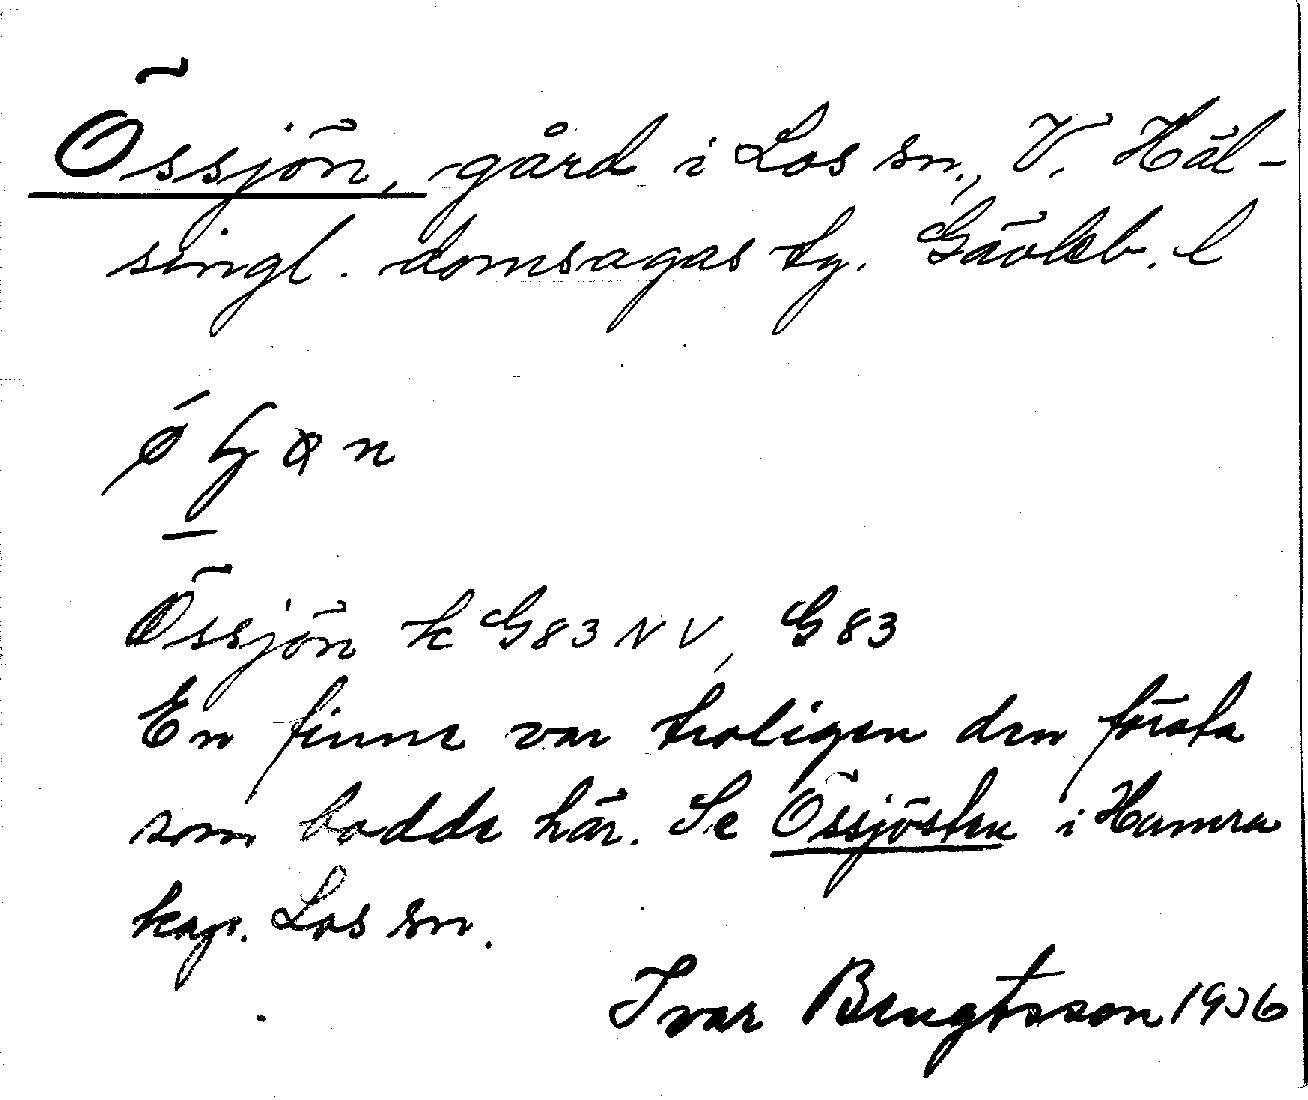 Össjön, gård i Los sn., V. Häl-
singl. domsagas tg. Gävleb. l
Össjön k G83 NV, G 83
En finne var troligen den första
som bodde här. Se Össjösten i Hamra
kap. Los sn.
Ivar Bengtsson 1936